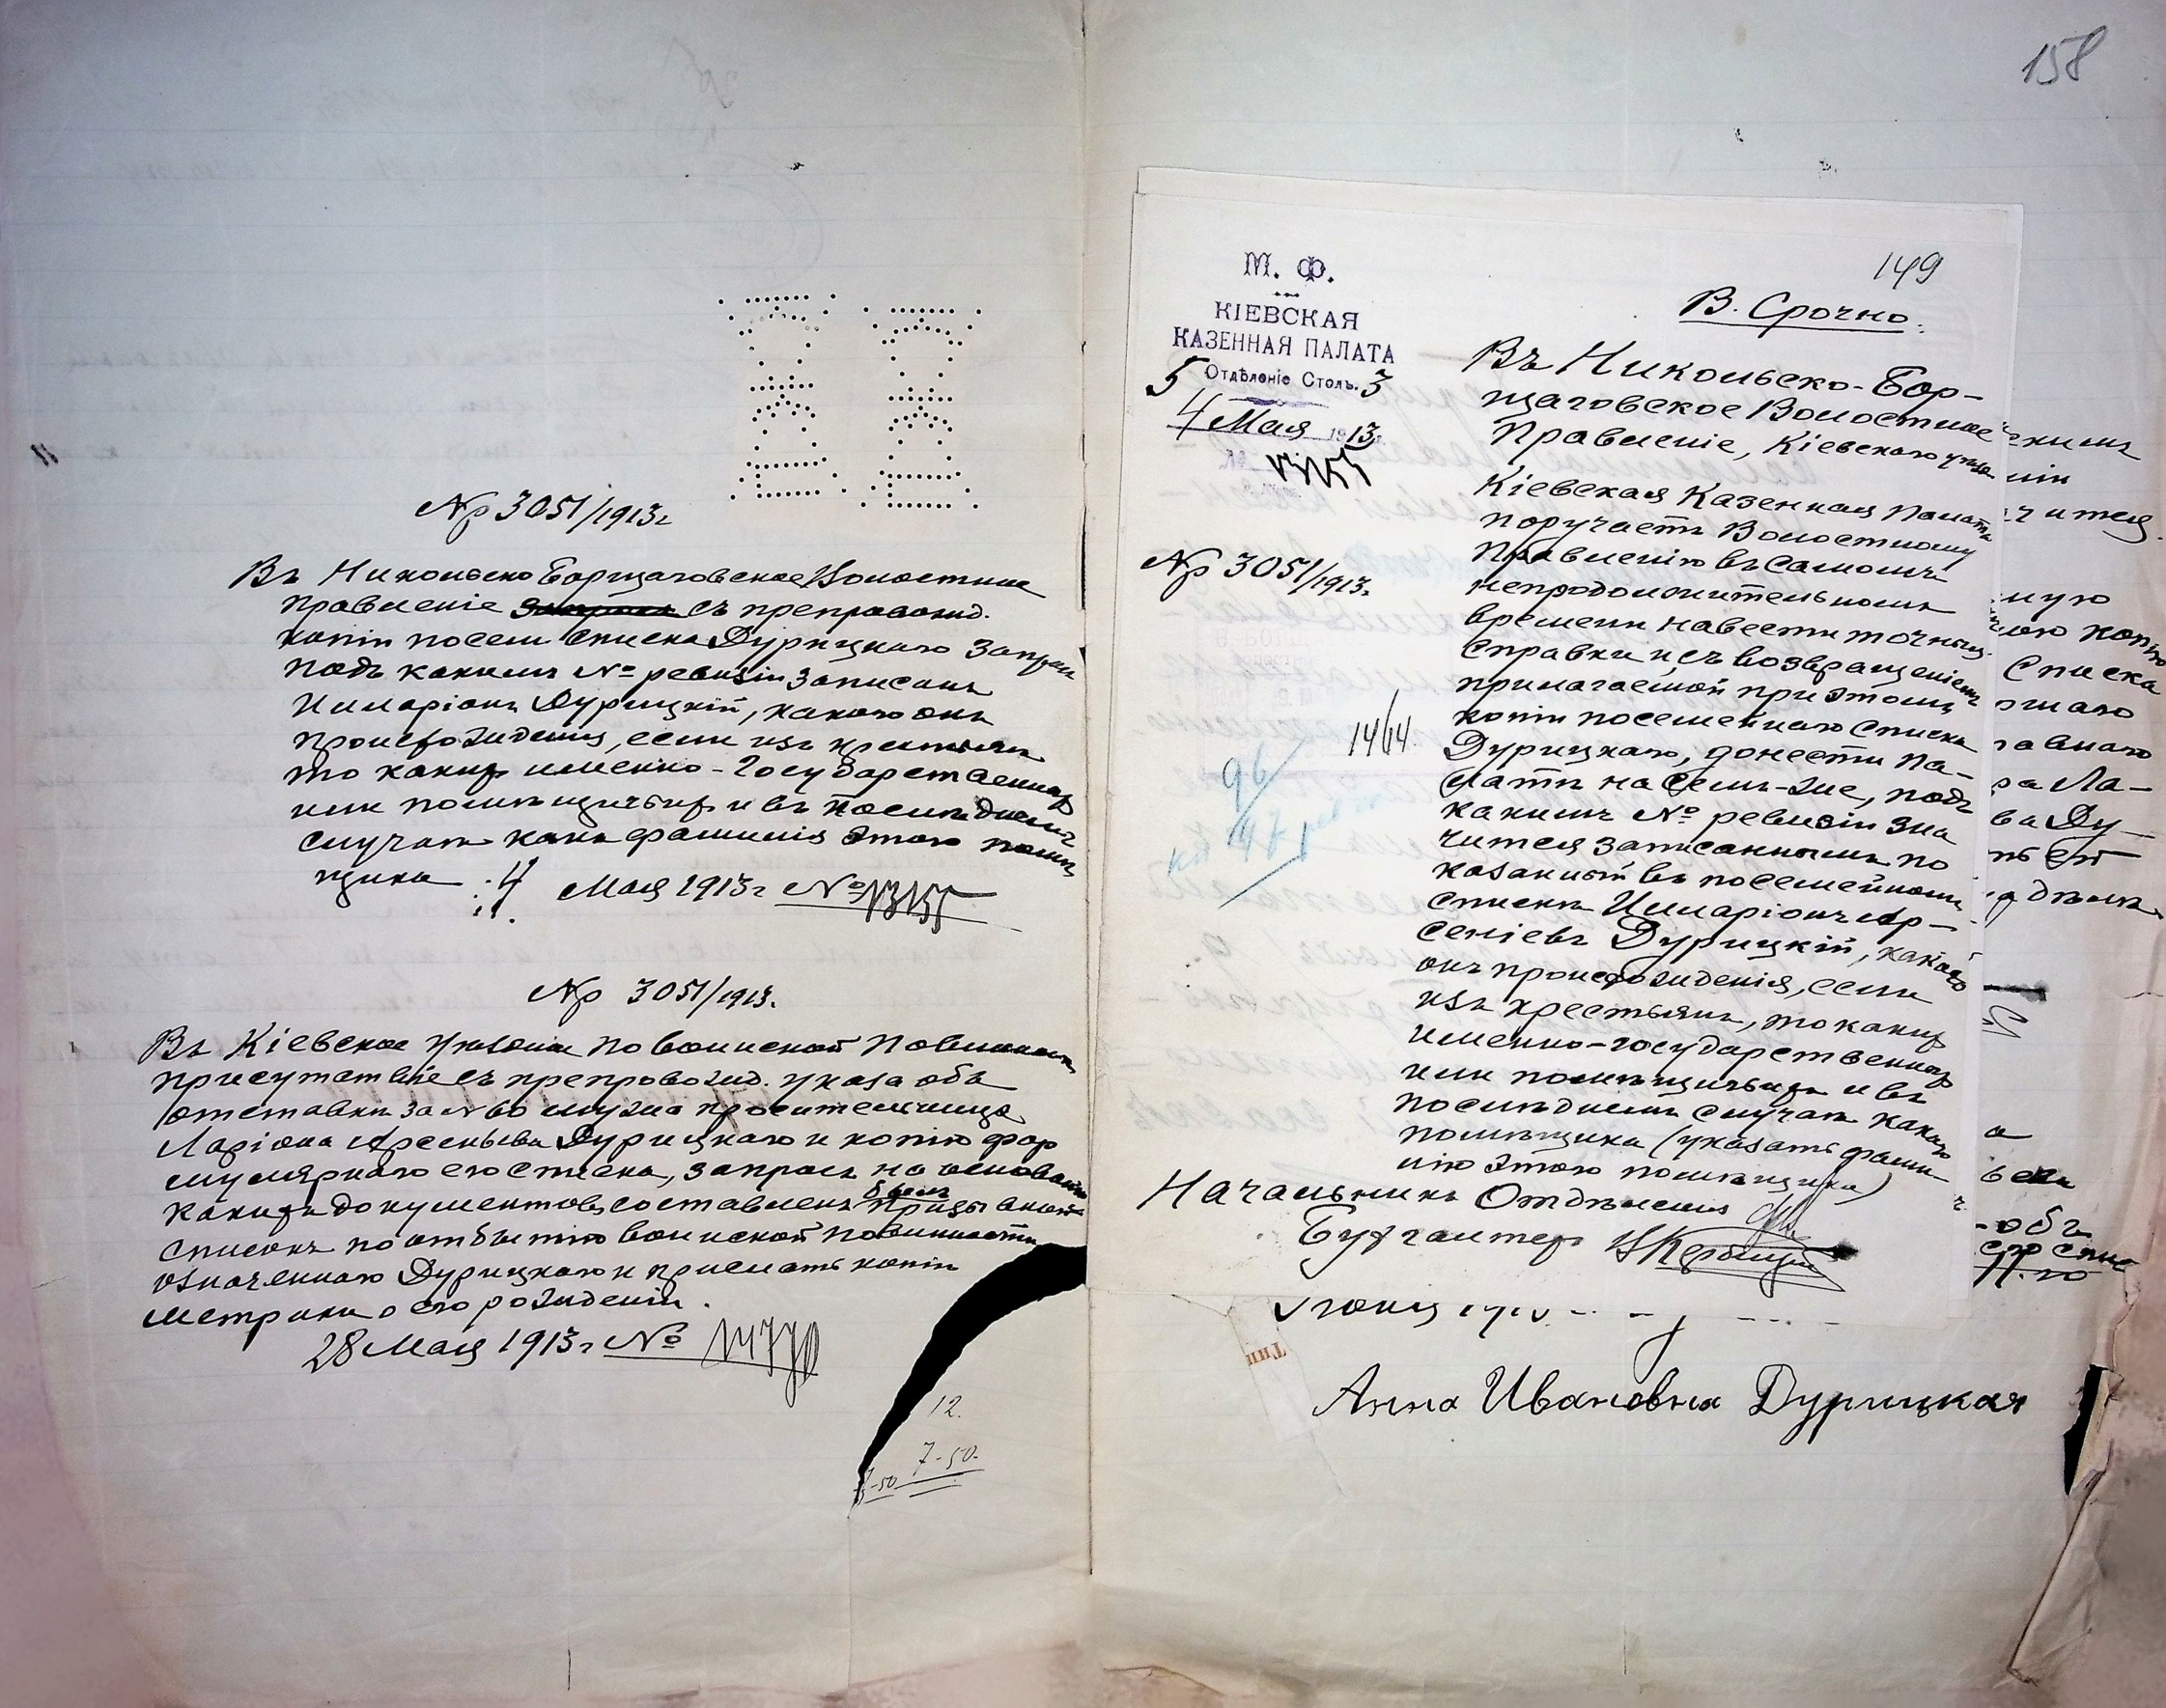 № 3051/1913г
Въ Никольско Борщаговское Волостное
Правленіе съ препровожд.
копіи посем списка Дурицкаго
подъ какимъ № ревизіи записанъ
Илларіонъ Дурицкій, какого онъ
происхожденія, если изъ крестьянъ
то какихъ именно - государственныхъ
или помѣщичьихъ и въ послѣднемъ
случаѣ какъ фамилія этого помѣ
щика 4 Мая 1913г № 13155
№ 3051/1913.
Въ Кіевское Уѣздное по воинской повинности
присутствіе съ препровожд. указа объ
отставкѣ за № 60 мужа просительницы
Ларіона Арсеньева Дурицкаго и копію фор
мулярнаго его списка, запросъ на основаніи
какихъ документовъ составленъ былъ призывной
списокъ по отбытію воинской повинности
означеннаго Дурицкаго и прислать копіи
метрики о его рожденіи.
28 Мая 1913г №
12.
7-50.
158
149
М. Ф.
КІЕВСКАЯ
КАЗЕННАЯ ПАЛАТА
5 Отдѣленіе Столъ. 3
4 Мая 1913г.
№ 13155
№ 3051/1913.
14/14.
96
47
В. Срочно.
Въ Никольско-Бор-
щаговское Волостное
Правленіе, Кіевскаго уѣзда
Кіевская Казенная Палата
поручаетъ Волостному
Правленію въ самомъ
непродолжительномъ
времени навести точныя
справки и съ возвращеніемъ
прилагаемой при этомъ
копіи посемейнаго списка
Дурицкаго, донести Па-
латѣ на семъ-же, подъ
какимъ № ревизіи зна
чится записаннымъ по
казанный въ посемейномъ
спискѣ Илларіонъ Ар-
сеніевъ Дурицкій, какого
онъ происхожденія, если
изъ крестьянъ, то какихъ
именно-государственныхъ
или помѣщичьихъ и въ
послѣднемъ случаѣ какого
помѣщика (указать фами
лію этого помѣщика)
Начальникъ Отдѣленія
Бухгалтеръ
Анна Ивановна Дурицкая